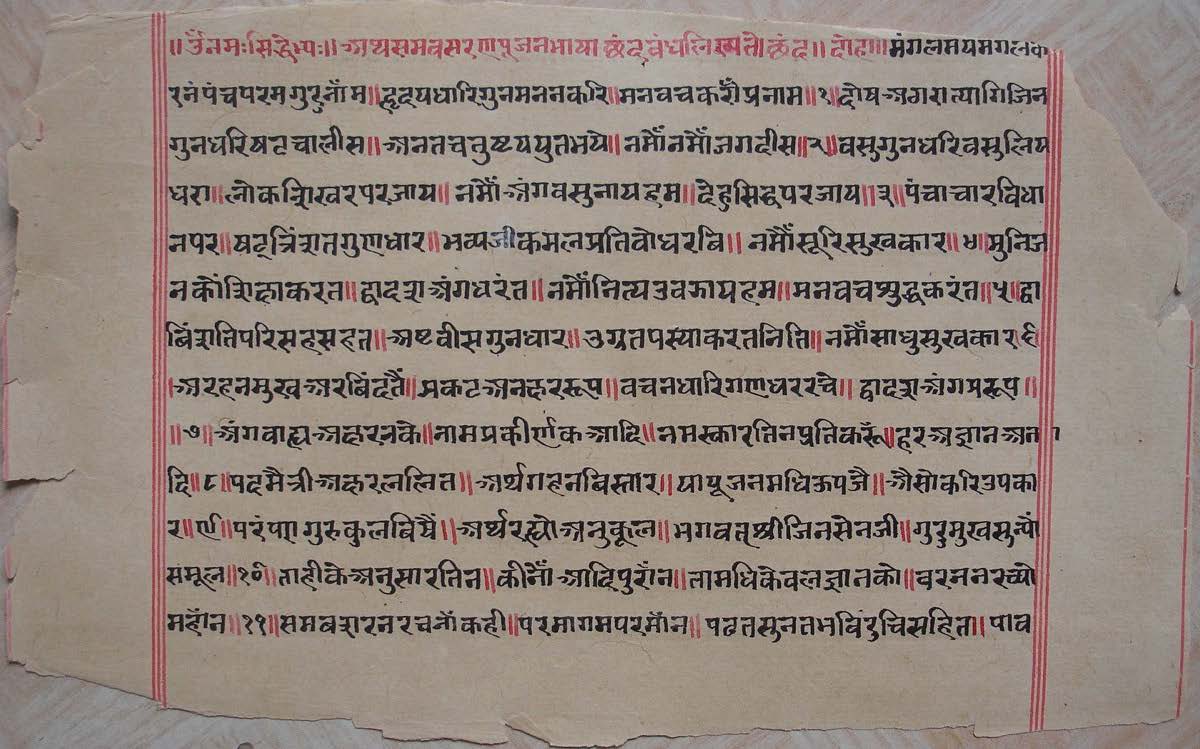 ॥ॐनमःसिद्धेभ्यः॥अथसमवसरणपूजनभाषाछंदबंधलिख्यते॥छंद॥दोहा॥मंगलमयमगलक
रनंपंचपरमगुरुनाँम॥हृदयधारिगुनमननकरि॥मनवचकरौंप्रनाम॥१॥दोषअगरात्यागिजिन
गुनधरिषटचालीस॥अनतचतुष्टययुतभये॥नमौँनमौँजगदीस॥२॥वसुगुनधरिवसुलिय
धरा॥लोकशिखरपरजाय॥नमौँअंगवसुनायहम॥देहुसिद्धपरजाय॥३॥पंचाचारविधा
नपर॥षटत्रिंशतगुणधार॥भव्यजीकमलप्रतिवोधरवि॥नमौँसूरिसुखकार॥४॥मुनिज
नकौंशिह्माकरत॥द्वादशअंगधरंत॥नमौँनित्यउवझायहम॥मनवचश्रुद्धकरंत॥५॥द्वा
विंशतिपरिसहसहत॥अष्टवीसगुनधार॥उग्रतपस्याकरतनिति॥नमौँसाधुसुखकार६
अरहनमुखअरबिंदतैं॥प्रकटअनह्मररूप॥वचनधारिगणधररचे॥द्वादशअंगप्ररूप॥
॥७॥अंगवाह्यअह्मरनके॥नामप्रकीर्णकआदि॥नमस्कारतिनप्रतिकरूँ॥हरअज्ञानअत
दि॥८॥पदमैत्रीअह्मरललित॥अर्थगहनबिस्तार॥यापूजनमधिऊपजै॥अैसोकरिउपका
र॥९॥परंपरागुरुकुलबिषैं॥अर्थरह्योअनुकूल॥भगवतश्रीजिनसेनजी॥गुरुमुखसुन्यौं
समूल॥१०॥ताहीकेअनुसारतिन॥कीनौँआदिपुराँन॥तामधिकेवलज्ञानको॥वरमनरच्यो
महाँन॥११॥समवशरनरचनाँकही॥परमागमपरमाँन॥पढतसुनतभविरुचिसहित॥पाव